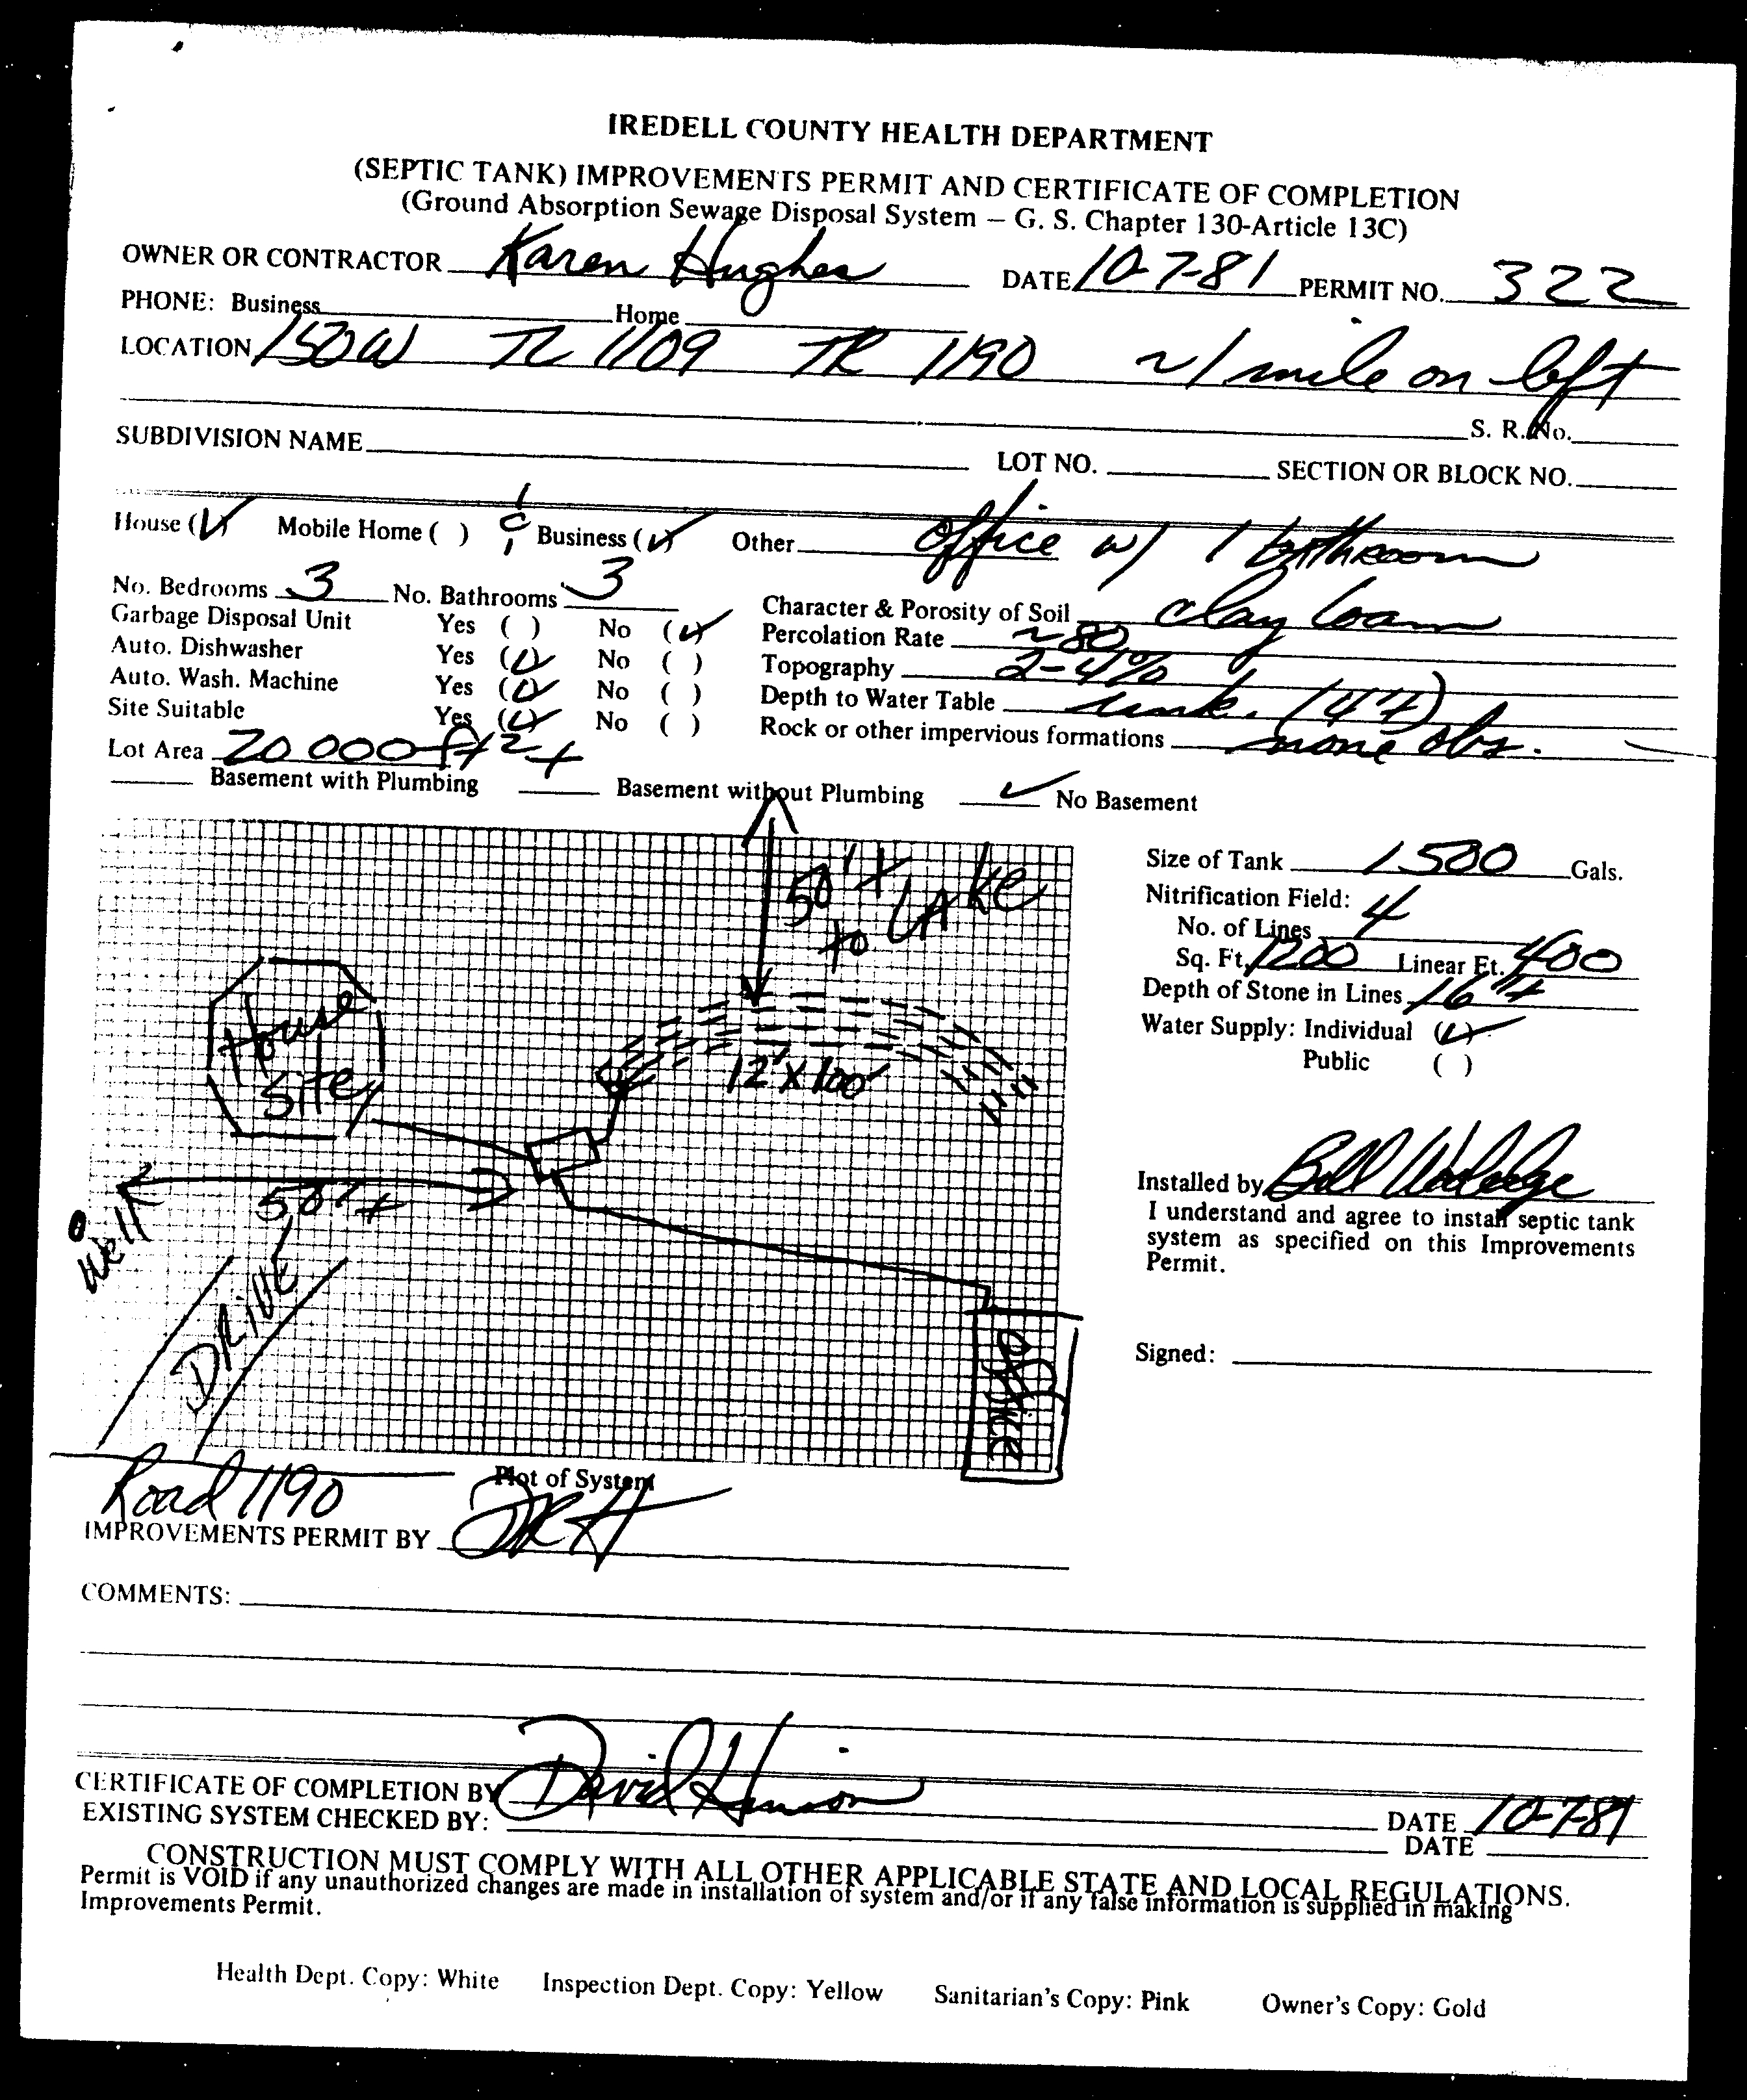 IREDELL COUNTY HEALTH DEPARTMENT
(SEPTIC TANK) IMPROVEMENTS PERMIT AND CERTIFICATE OF COMPLETION
(Ground Absorption Sewage Disposal System – G. S. Chapter 130-Article 13C)
OWNER OR CONTRACTOR Karen Hughes DATE 10-7-81 PERMIT NO. 322
PHONE: Business Home
LOCATION 150W TL 1109 TR 1190 ~1 mile on left
S. R. No.
SUBDIVISION NAME LOT NO. SECTION OR BLOCK NO.
House (✓) Mobile Home ( ) & Business (✓) Other office w/ 1 bathroom
No. Bedrooms 3 No. Bathrooms 3
Garbage Disposal Unit Yes ( ) No (✓)
Auto. Dishwasher Yes (✓) No ( )
Auto. Wash. Machine Yes (✓) No ( )
Site Suitable Yes (✓) No ( )
Lot Area 20 000 ft2+
Character & Porosity of Soil clay loam
Percolation Rate ~80
Topography 2-4%
Depth to Water Table unk. (4'+)
Rock or other impervious formations none obs.
Basement with Plumbing Basement without Plumbing ✓ No Basement
50'+
to LAKE
House
Site
12'x100'
50'+
Well
DRIVE
office
Road 1190
Plot of System
Size of Tank 1500 Gals.
Nitrification Field:
No. of Lines 4
Sq. Ft. 1200 Linear Ft. 400
Depth of Stone in Lines 16"+
Water Supply: Individual (✓)
Public ( )
Installed by Bill
I understand and agree to install septic tank
system as specified on this Improvements
Permit.
Signed:
IMPROVEMENTS PERMIT BY DRH
COMMENTS:
CERTIFICATE OF COMPLETION BY David Hinson DATE 10-7-81
EXISTING SYSTEM CHECKED BY: DATE
CONSTRUCTION MUST COMPLY WITH ALL OTHER APPLICABLE STATE AND LOCAL REGULATIONS.
Permit is VOID if any unauthorized changes are made in installation of system and/or if any false information is supplied in making
Improvements Permit.
Health Dept. Copy: White Inspection Dept. Copy: Yellow Sanitarian's Copy: Pink Owner's Copy: Gold